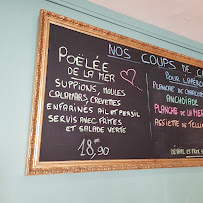 NOS COUPS DE C
POËLÉE
DE LA MER
SUPPIONS, MOULES
CALAMARS, CREVETTES
ENFARINÉS AIL et PERSIL
SERVIS AVEC FRITES
ET SALADE VERTE
18,90
POUR L'APÉRO
PLANCHE DE CHARCUT
ANCHOIADE
PLANCHE DE LA MER
ASSIETTE DE TELLI